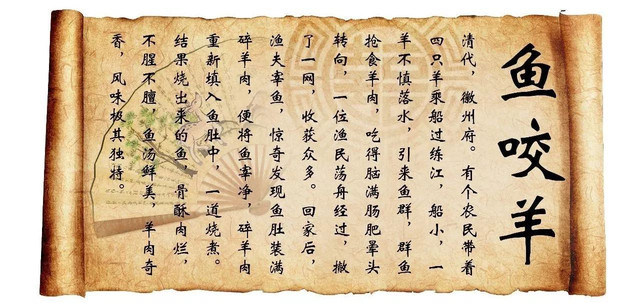 鱼咬羊
清代，徽州府。有个农民带着
四只羊乘船过练江，船小，一
羊不慎落水，引来鱼群，群鱼
抢食羊肉，吃得脑满肠肥晕头
转向，一位渔民荡舟经过，撒
了一网，收获众多。回家后，
渔夫宰鱼，惊奇发现鱼肚装满
碎羊肉，便将鱼宰净，碎羊肉
重新填入鱼肚中，一道烧煮。
结果烧出来的鱼，骨酥肉烂，
不腥不膻，鱼汤鲜美，羊肉奇
香，风味极其独特。